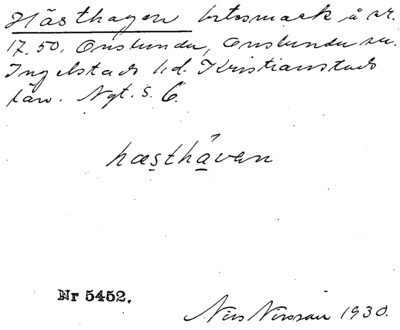 Hästhagen betesmark å nr.
17.50. Onslunda, Onslunda sn.
Ingelstads hd. Kristianstads
län. Nyt. s. 6.
hæsthåven
Nr 5452.
Nils Nilsson 1930.